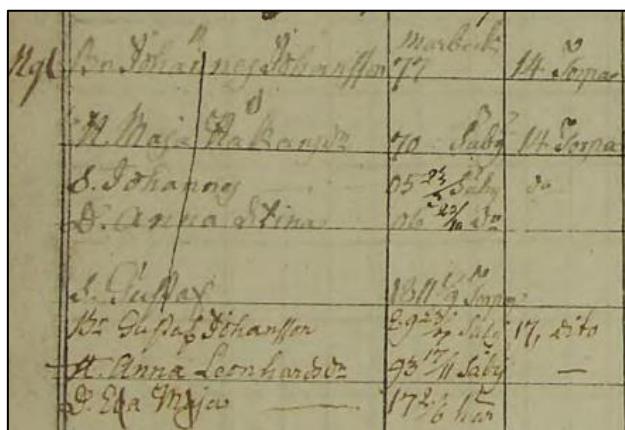 Marbeck
Bn Johannes Johansson 77 14 Torpa
H. Maja Håkansdr 70 Säby 14 Torpa
S. Johannes 05 Säby do
D. Anna Stina 06 do
S. Gustaf 1811 Torpa
Bn Gustaf Johansson Säby 17, dito
H. Anna Leonhardsdr 93 17/11 Säby —
D. Eva Maja — 17 2/6 här